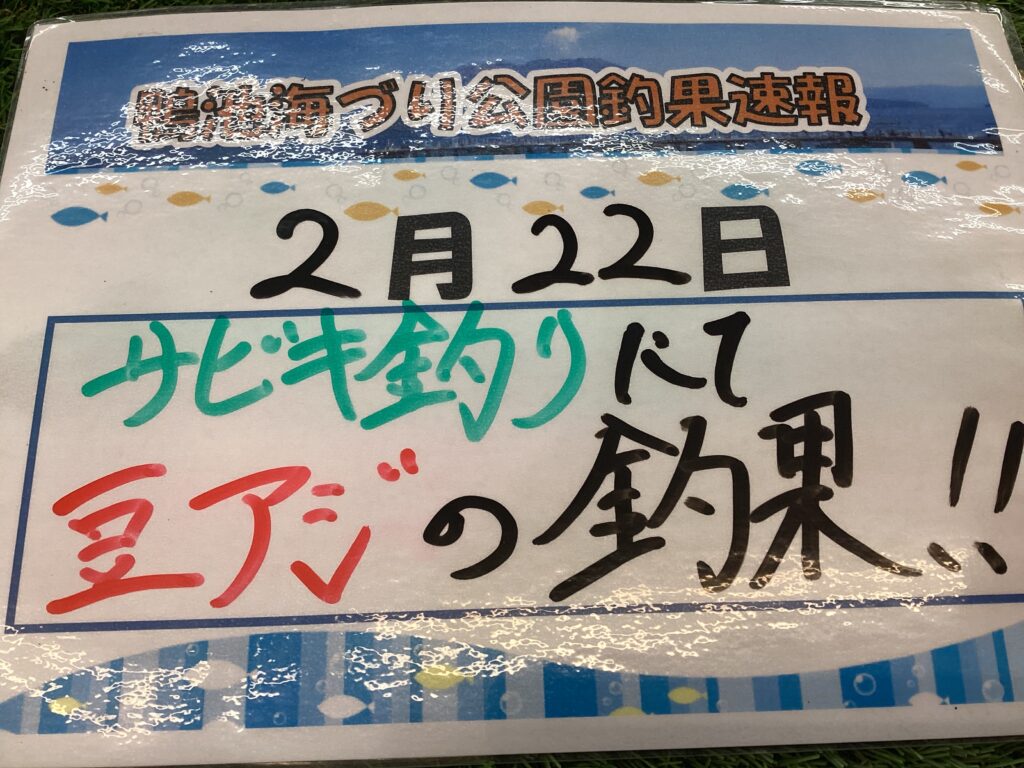 鴨池海づり公園釣果速報
2月22日
サビキ釣りにて
豆アジの釣果!!